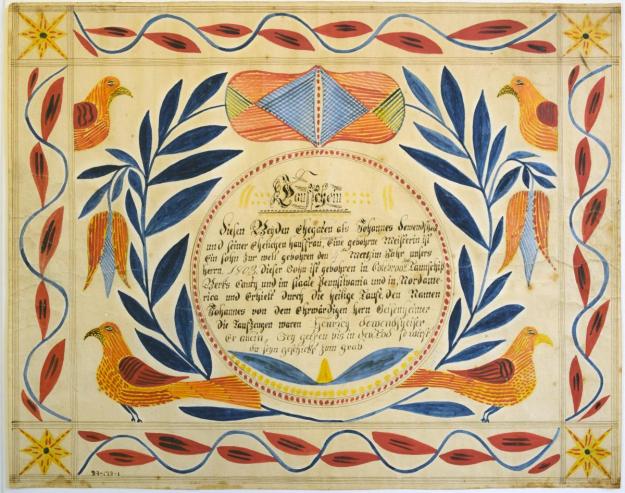 Taufschein
Diesen Beyden Ehegaten als Johannes
und seiner Ehelichen hausfrau, Eine gebohrne Meisterin ist
Ein sohn zur welt gebohren den Mertz im Jahr unsers
herrn 1803 dieser Sohn ist gebohren in Taunschip
Berks Caunty und im staate Pennsilvania und in Nordame=
rica und Erhielt durch die heilige Taufe den Namen
Johannes von dem Ehrwärdigen Herrn
Die Taufzeugen waren Henrich
Er allein, bis in den Tod
du seyn geschickt zum grab